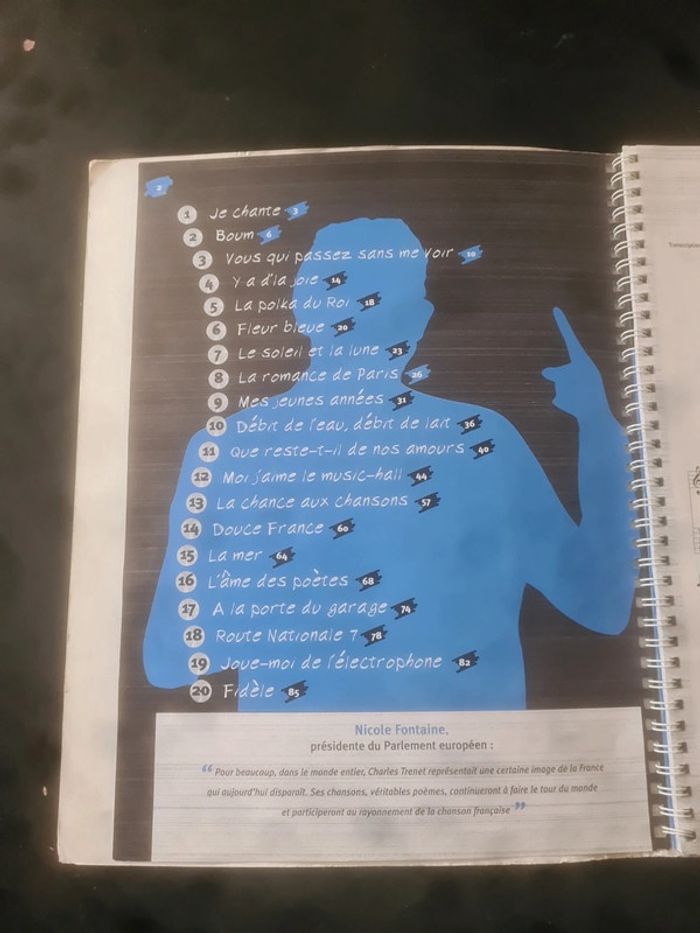 2
1 Je chante 3
2 Boum 6
3 Vous qui passez sans me voir 10
4 Y a d'la joie 14
5 La polka du Roi 18
6 Fleur bleue 20
7 Le soleil et la lune 23
8 La romance de Paris 26
9 Mes jeunes années 31
10 Débit de l'eau, débit de lait 36
11 Que reste-t-il de nos amours 40
12 Moi j'aime le music-hall 44
13 La chance aux chansons 57
14 Douce France 60
15 La mer 64
16 L'âme des poètes 68
17 A la porte du garage 74
18 Route Nationale 7 78
19 Joue-moi de l'électrophone 82
20 Fidèle 85
Nicole Fontaine,
présidente du Parlement européen :
“ Pour beaucoup, dans le monde entier, Charles Trenet représentait une certaine image de la France
qui aujourd'hui disparaît. Ses chansons, véritables poèmes, continueront à faire le tour du monde
et participeront au rayonnement de la chanson française ”